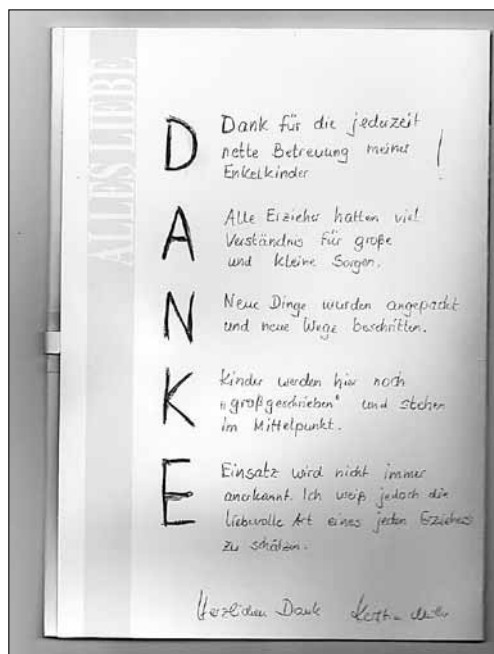 ALLES LIEBE
D
Dank für die jederzeit
nette Betreuung meiner !
Enkelkinder
A
Alle Erzieher hatten viel
Verständnis für große
und kleine Sorgen.
N
Neue Dinge wurden angepackt
und neue Wege beschritten.
K
Kinder werden hier noch
"großgeschrieben" und stehen
im Mittelpunkt.
E
Einsatz wird nicht immer
anerkannt. Ich weiß jedoch die
liebevolle Art eines jeden Erziehers
zu schätzen.
Herzlichen Dank